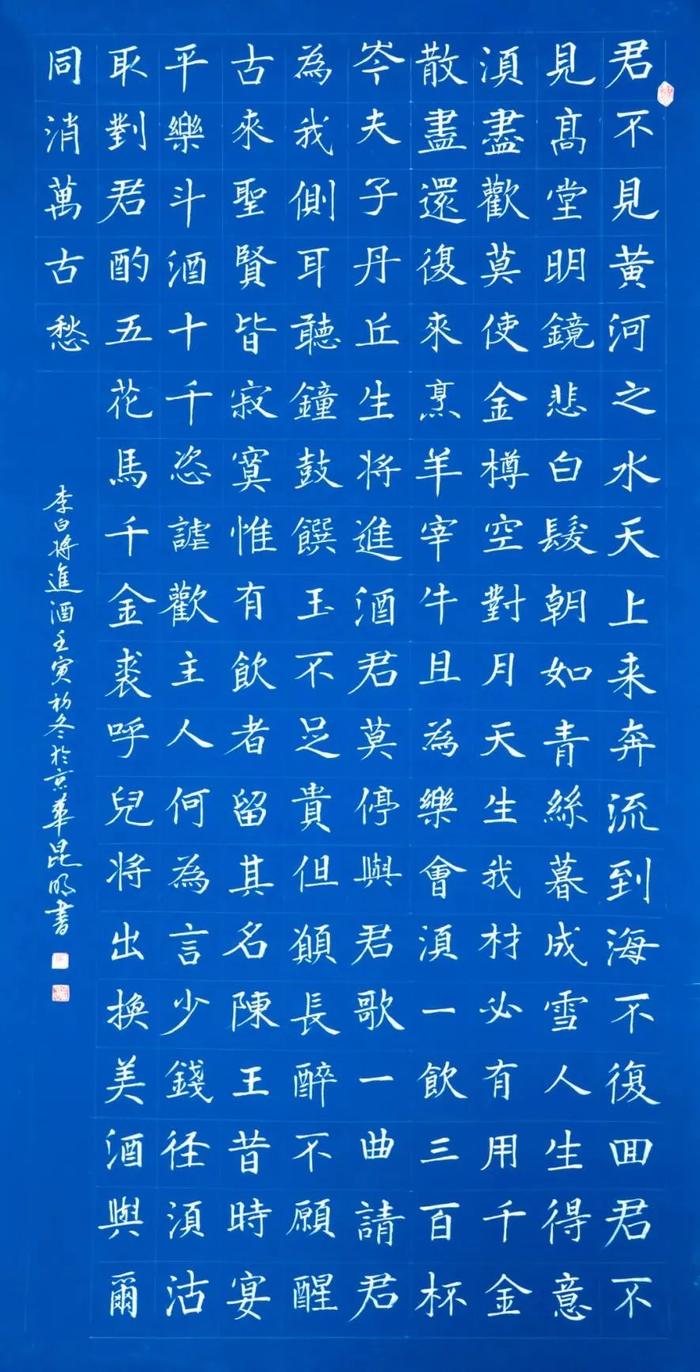 君不見黃河之水天上来奔流到海不復囬君不
見髙堂明鏡悲白髮朝如青絲暮成雪人生得意
湏盡歡莫使金樽空對月天生我材必有用千金
散盡還復來烹羊宰牛且為樂會湏一飲三百杯
岑夫子丹丘生将進酒君莫停與君歌一曲請君
為我側耳聽鐘鼓饌玉不足貴但願長醉不願醒
古來聖賢皆寂寞惟有飲者留其名陳王昔時宴
平樂斗酒十千恣謔歡主人何為言少錢径湏沽
取對君酌五花馬千金裘呼兒将出換美酒與爾
同消萬古愁
李白将進酒壬寅初冬於京華昆明書